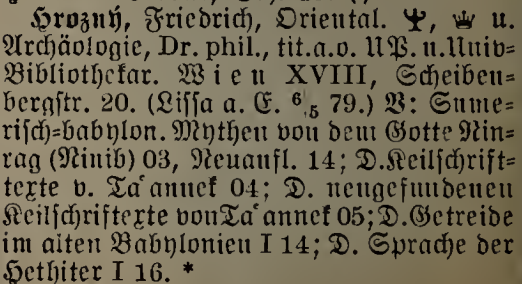 Hrozný, Friedrich, Oriental. Ψ, ♕ u.
Archäologie, Dr. phil., tit.a.o. UP. u.Univ=
Bibliothekar. Wien XVIII, Scheiben=
bergstr. 20. (Lissa a. E. 6/5 79.) V: Sume=
risch=babylon. Mythen von dem Gotte Nin=
rag (Ninib) 03, Neuaufl. 14; D.Keilschrift=
texte v. Taʿannek 04; D. neugefundenen
Keilschriftexte von Taʿannek 05; D.Getreide
im alten Babylonien I 14; D. Sprache der
Hethiter I 16. *